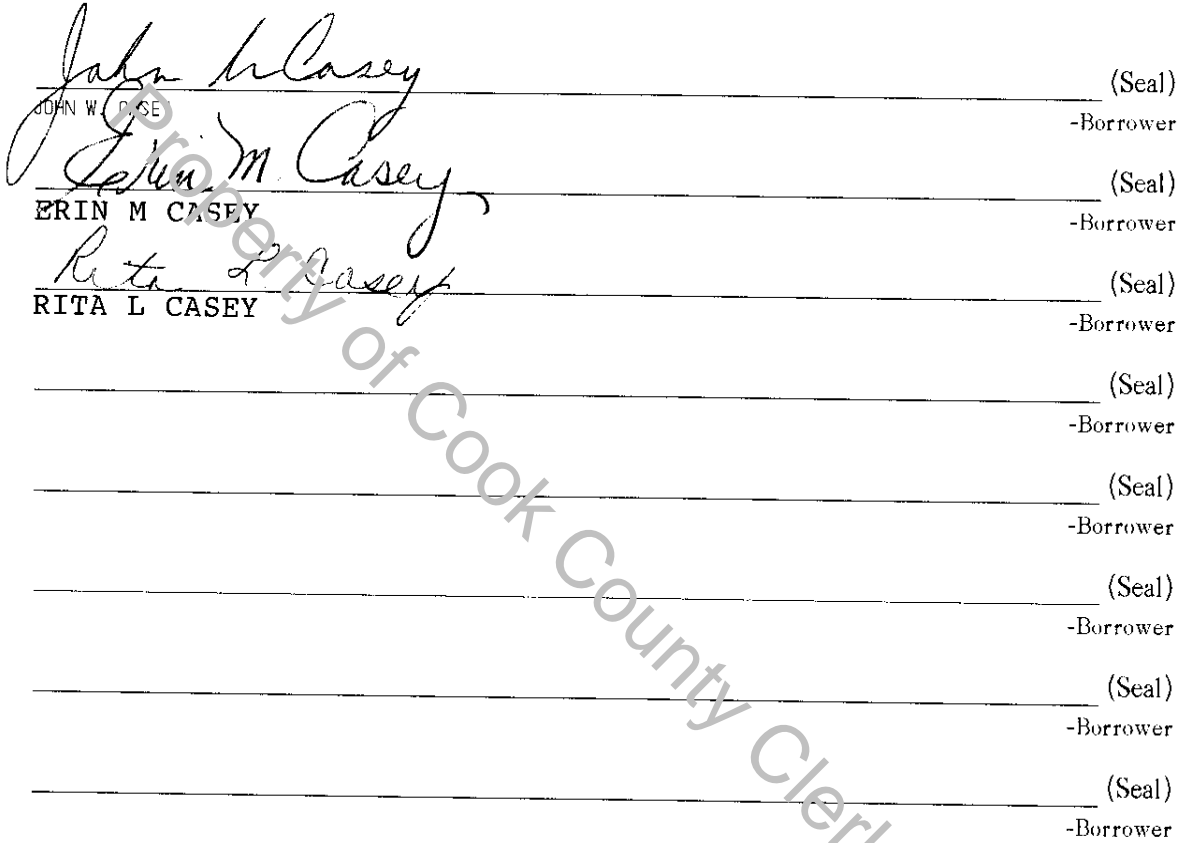 John W Casey (Seal)
JOHN W. CASEY -Borrower
Erin M. Casey (Seal)
ERIN M CASEY -Borrower
Rita L Casey (Seal)
RITA L CASEY -Borrower
(Seal)
-Borrower
(Seal)
-Borrower
(Seal)
-Borrower
(Seal)
-Borrower
(Seal)
-Borrower
Property of Cook County Clerk